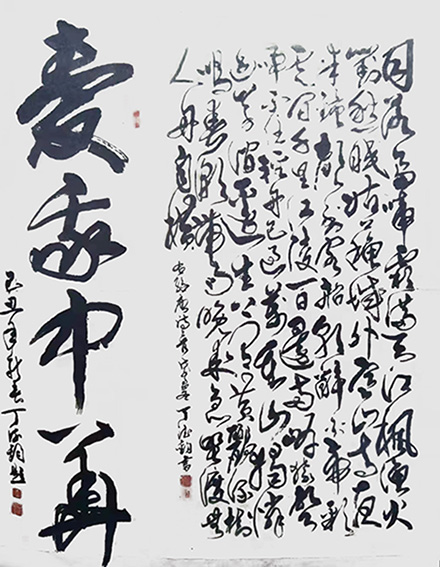 月落烏啼霜滿天江楓漁火
對愁眠姑蘇城外寒山寺夜
半鐘聲到客船朝辭白帝彩
雲間千里江陵一日還兩岸猿聲
啼不住輕舟已過萬重山獨憐
幽草澗邊生上有黃鸝深樹
鳴春潮帶雨晚來急野渡無
人舟自橫
唐詩三首 丁 書
愛我中華
己丑年新春丁 題